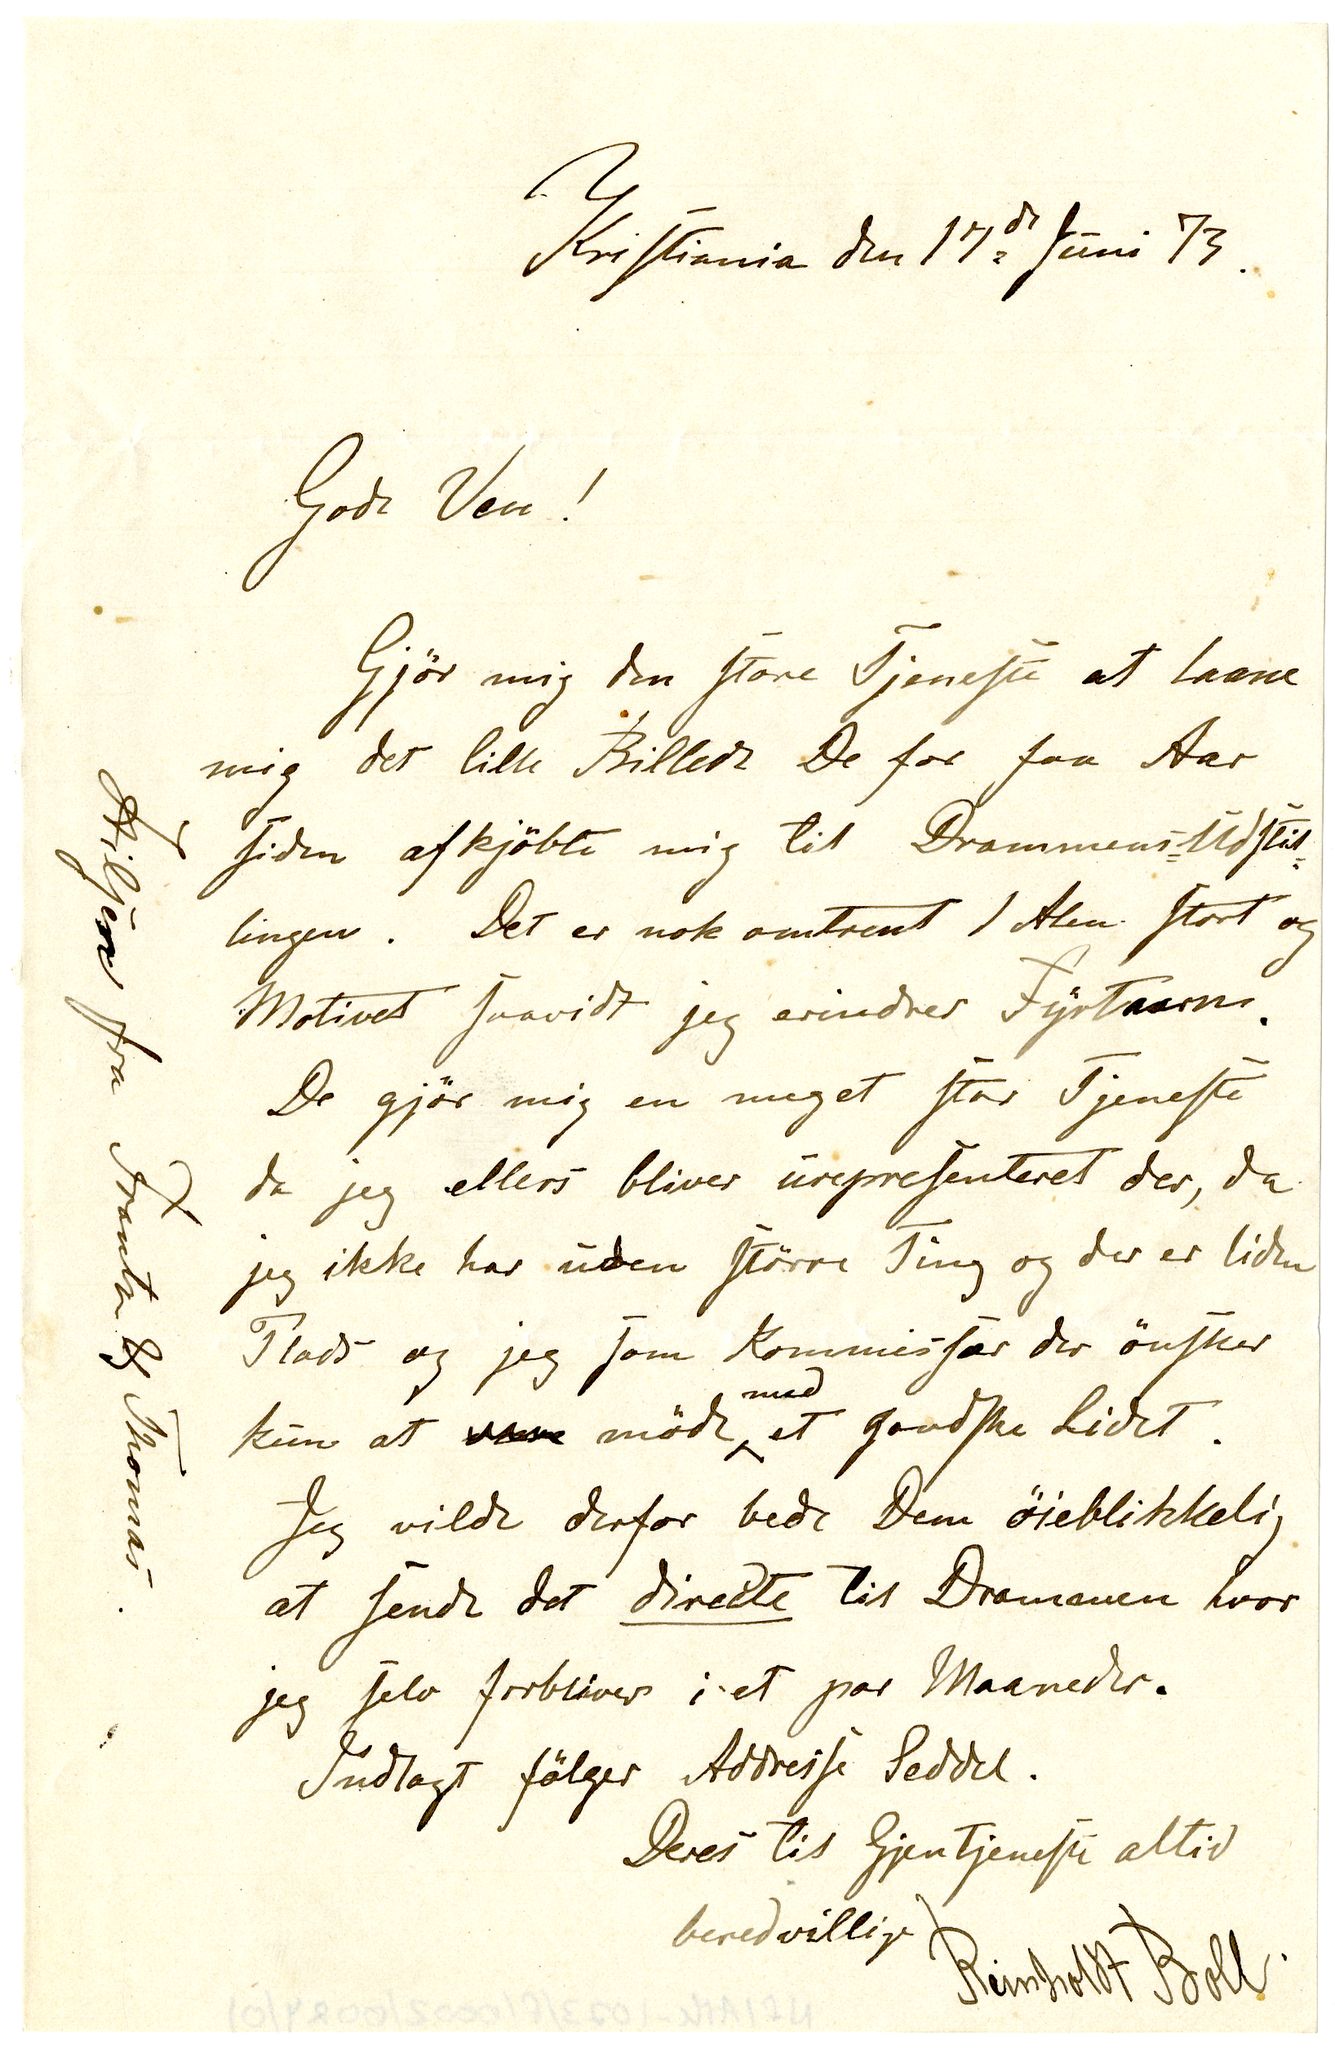 Kristiania den 17de Juni 73.
Gode Ven!
Gjör mig den store Tjeneste at laane
mig det lille Billede De for faa Aar
siden afkjöbte mig til Drammens=Udstil=
lingen. Det er nok omtrent 1 Alen stort og
Motivet saavidt jeg erindrer Fyrtaarn.
De gjör mig en meget stor Tjeneste
da jeg ellers bliver urepresenteret der, da
jeg ikke har uden större Ting og der er liden
Plads og jeg som Kommissær der önsker
kun at være möde med et gandske Lidet.
Jeg vilde derfor bede Dem öieblikkelig
at sende det directe til Drammen hvor
jeg selv forbliver i et par Maaneder.
Indlagt fölger Addresse Seddel.
Deres til Gjentjeneste altid
beredvillige
Reinholdt Boll
Hilsen fra Frants & Thomas.